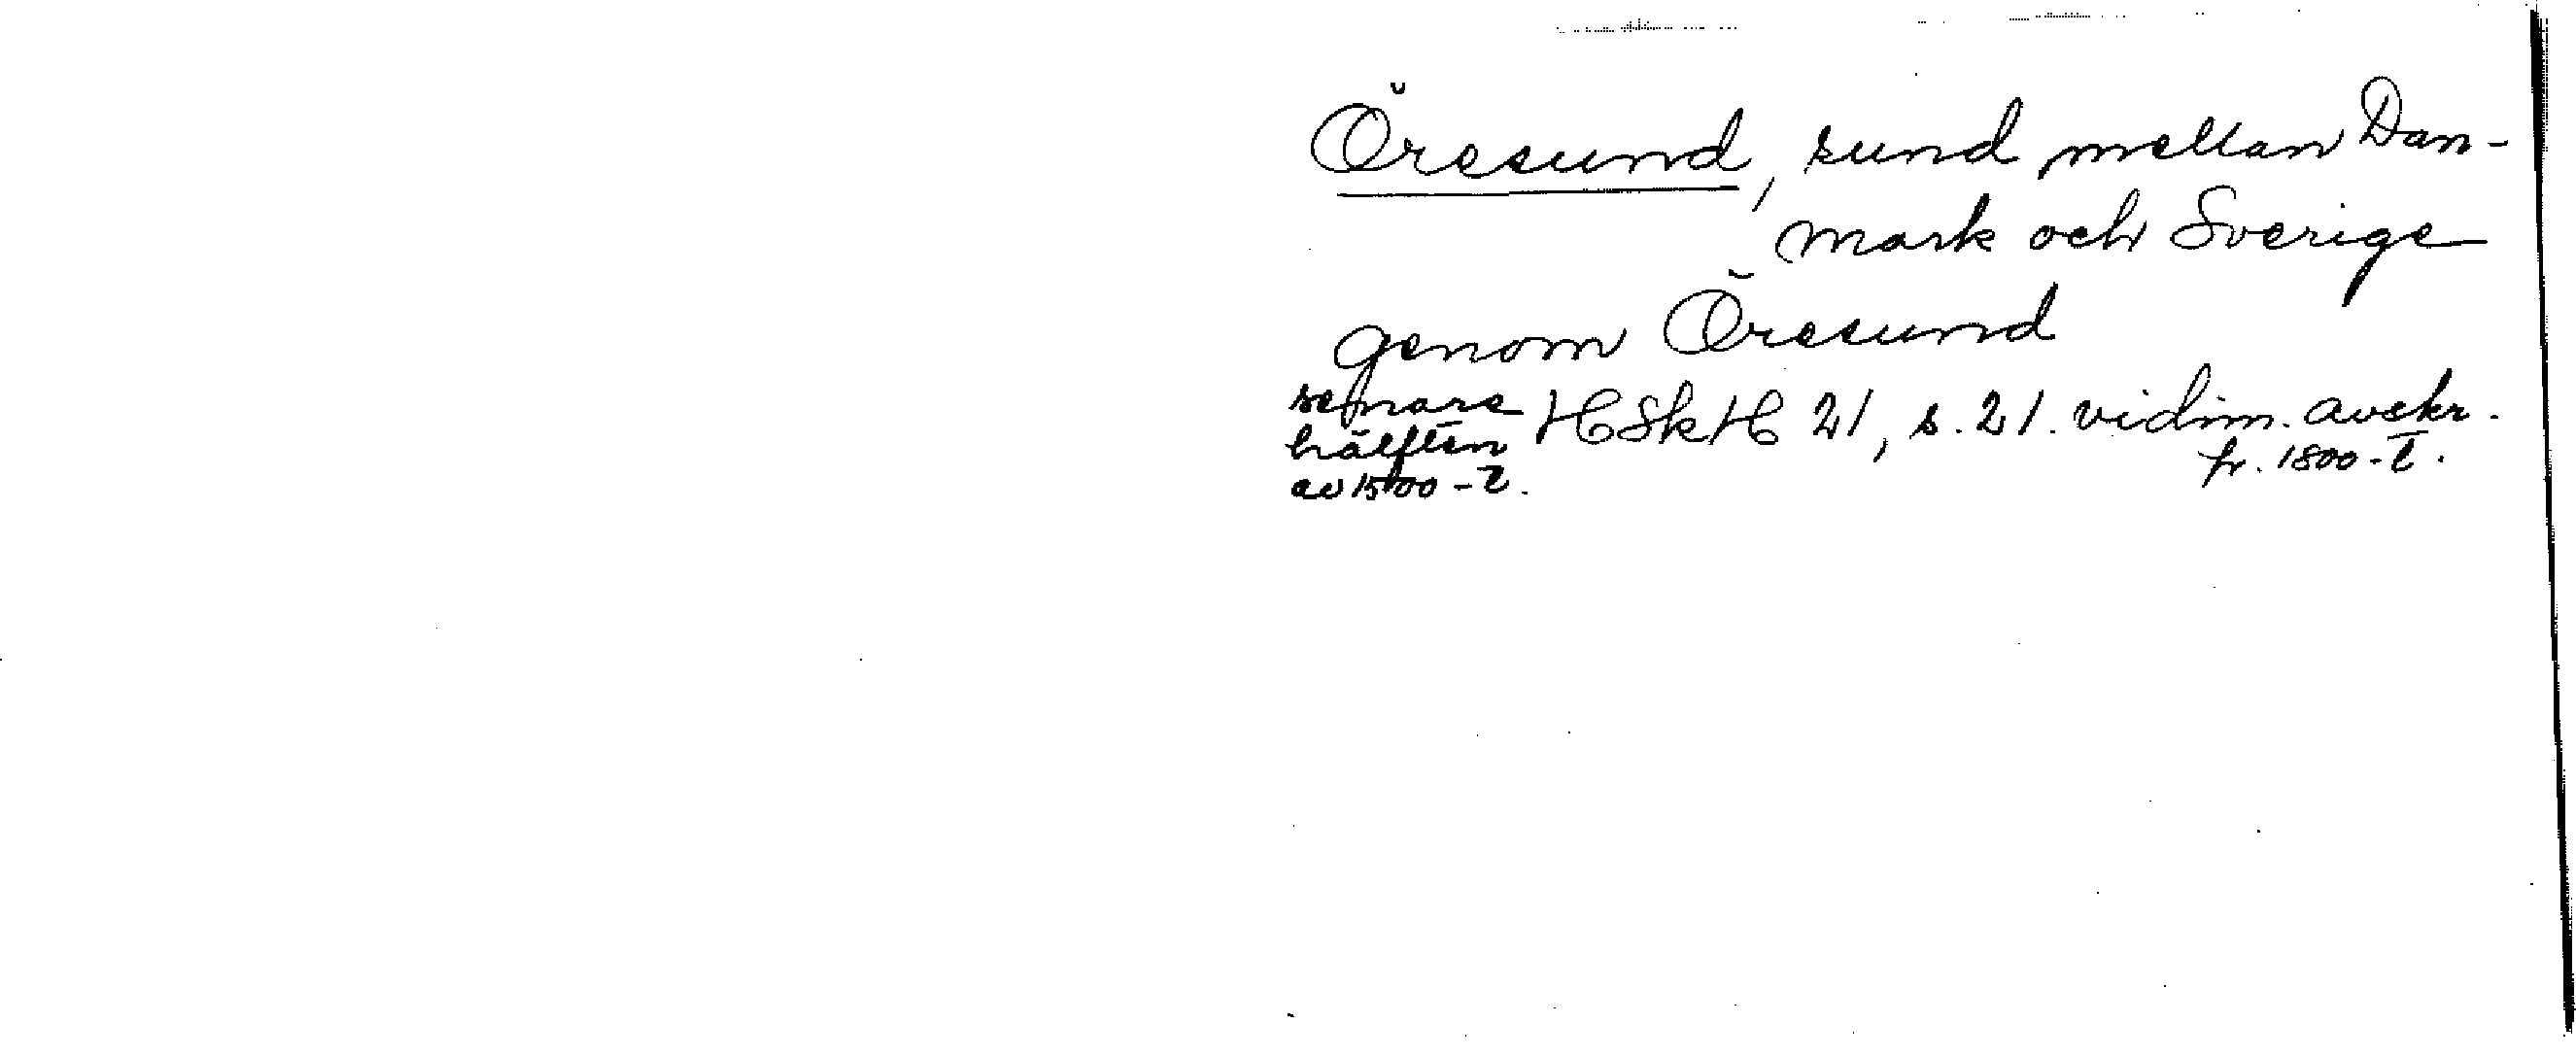 Öresund, sund mellan Dan-
mark och Sverige
genom Öresund
senare HSkH 21, s. 21. vidim. avskr.
hälften fr. 1800-t.
av 1500-t.